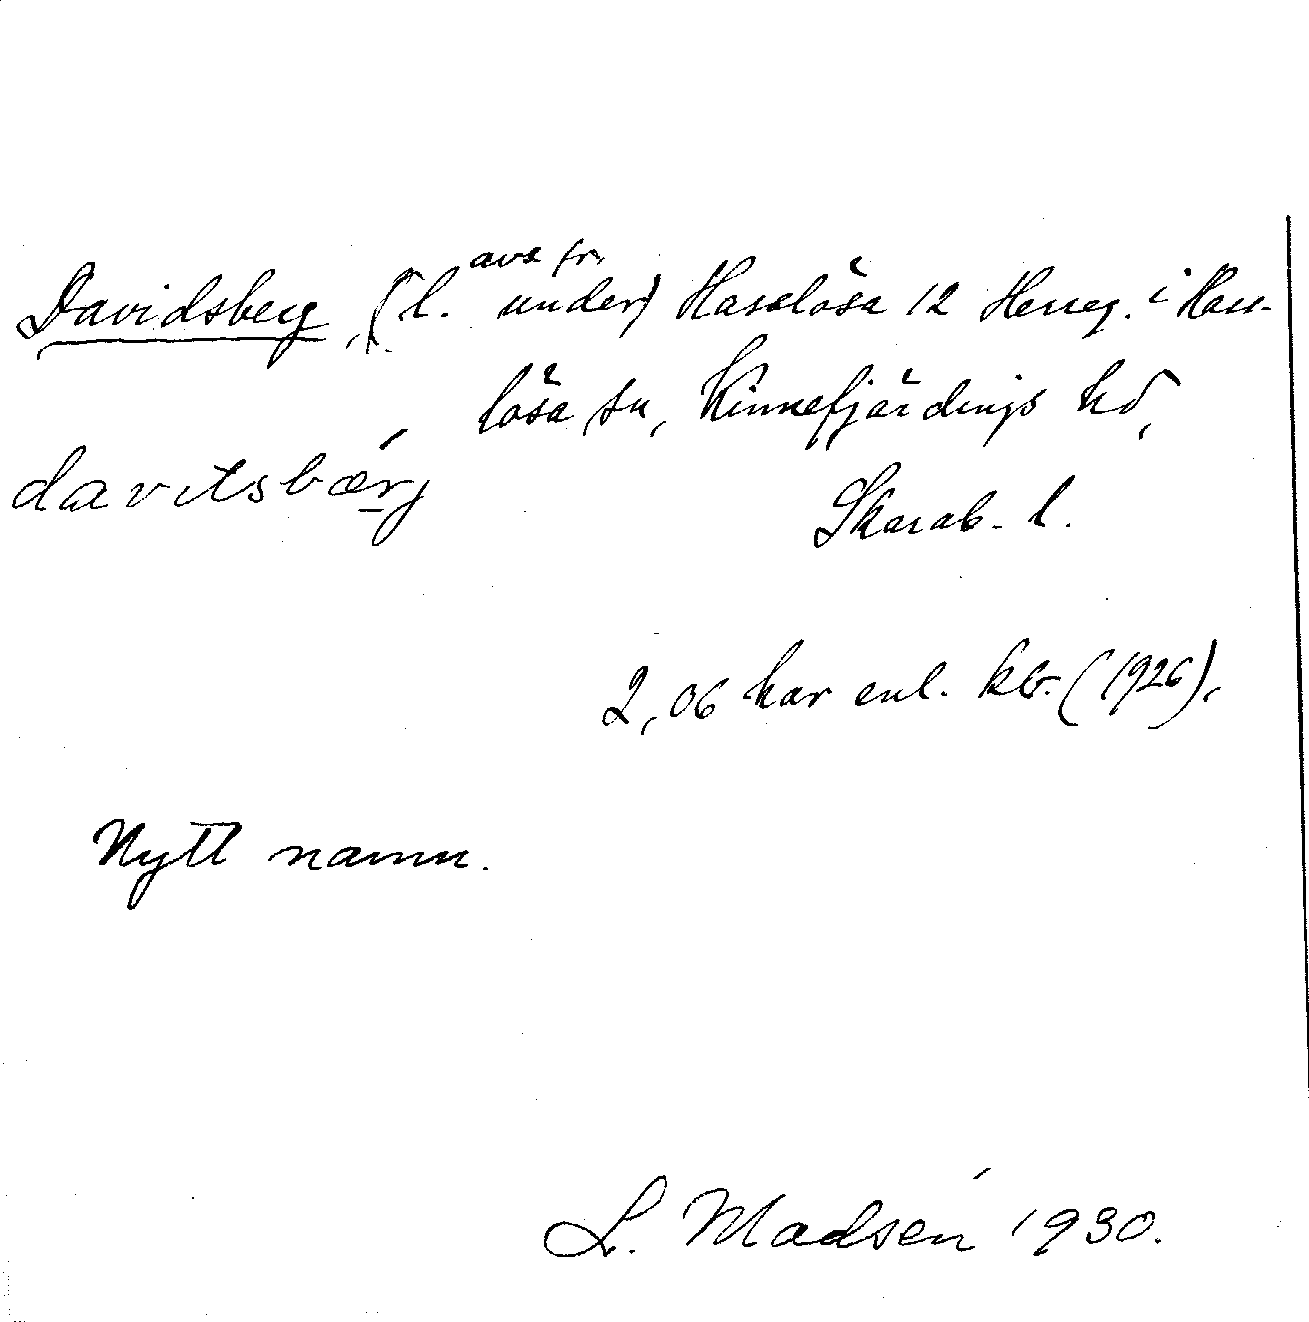 Davidsberg, (l. avs fr. under) Hasslösa 12 Herreg. i Hass-
lösa sn, Kinnefjärdings hd,
davitsbærj
Skarab. l.
2,06 har enl. kb. (1926).
Nytt namn.
L. Madsén 1930.